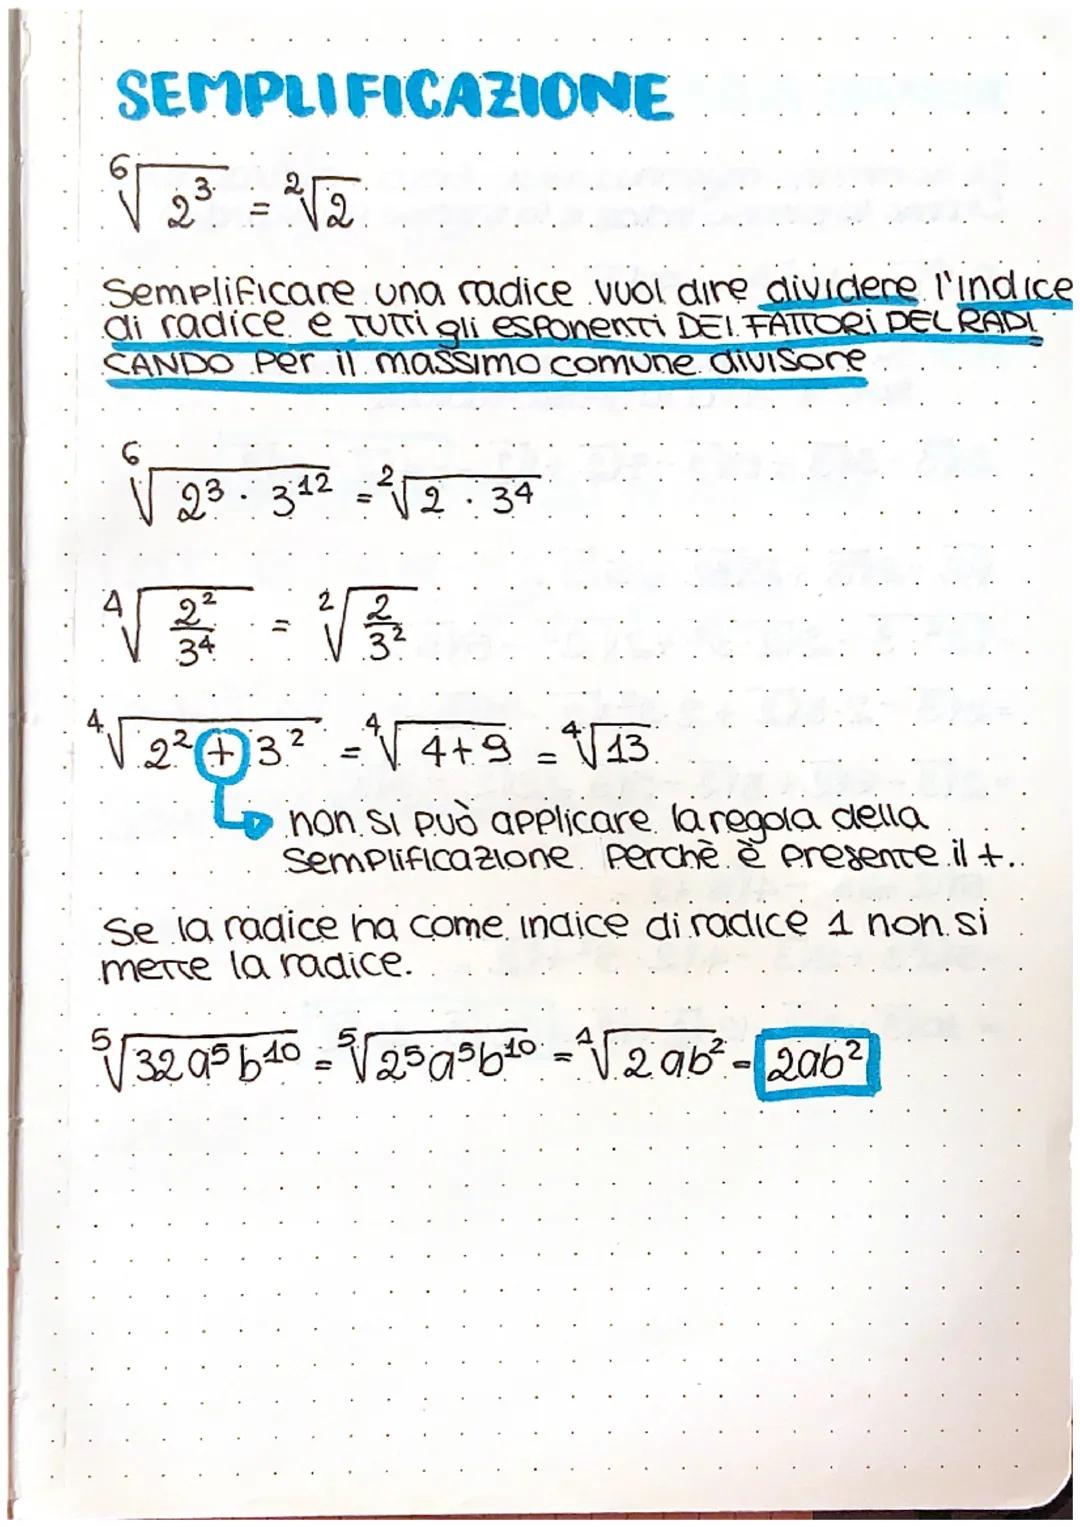 SEMPLIFICAZIONE
⁶√2³ = ²√2
Semplificare una radice vuol dire dividere l'indice
di radice e TUTTi gli esponenti DEI FATTORi DEL RADI
CANDO per il massimo comune divisore
⁶√2³ · 3¹² = ²√2 · 3⁴
⁴√2²/3⁴ = ²√2/3²
⁴√2² + 3² = ⁴√4+9 = ⁴√13
non si può applicare la regola della
semplificazione perchè è presente il +.
Se la radice ha come indice di radice 1 non si
mette la radice.
⁵√32a⁵b¹⁰ = ⁵√2⁵a⁵b¹⁰ = ¹√2ab² = 2ab²